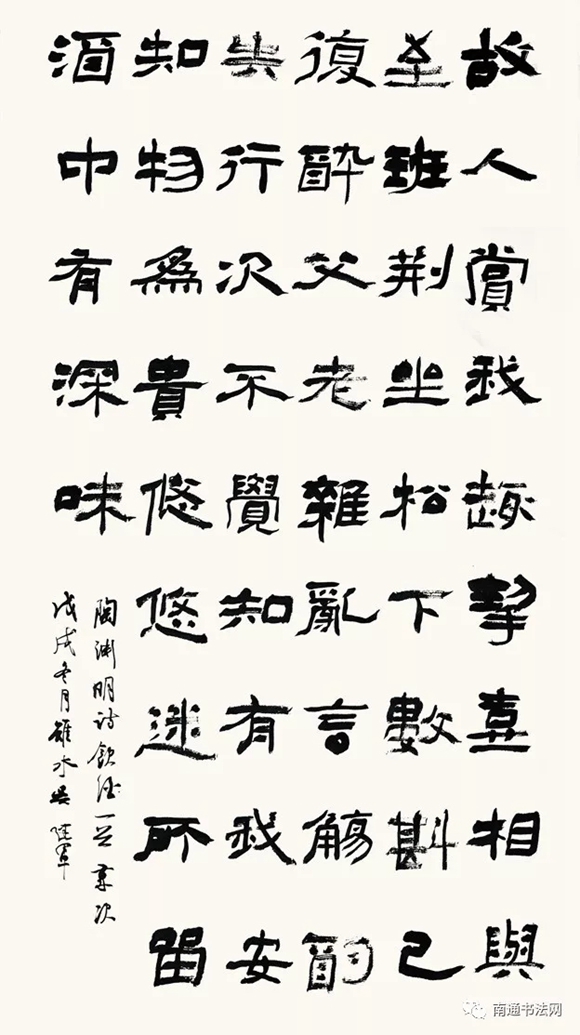 故人賞我趣挈壺相與
至班荊坐松下數斟已
復醉父老雜亂言觴酌
失行次不覺知有我安
知物爲貴悠悠迷所留
酒中有深味
陶渊明诗飲酒一首
戊戌冬月
南通书法网